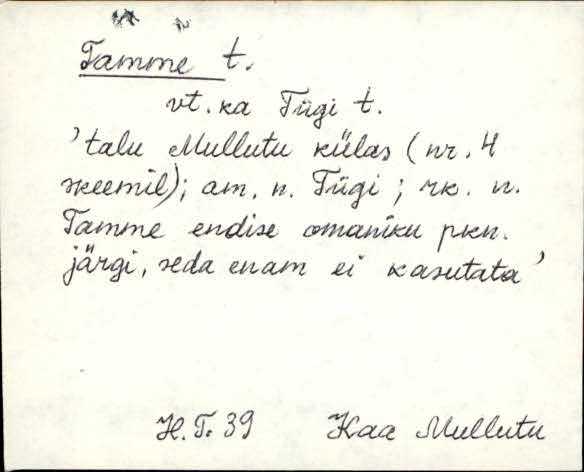 Tamme t.
vt. ka Tügi t.
'talu Mullutu külas (nr. 4
skeemil); am. n. Tügi; rk. n.
Tamme endise omaniku pkn.
järgi, seda enam ei kasutata'
H. T. 39 Kaa Mullutu